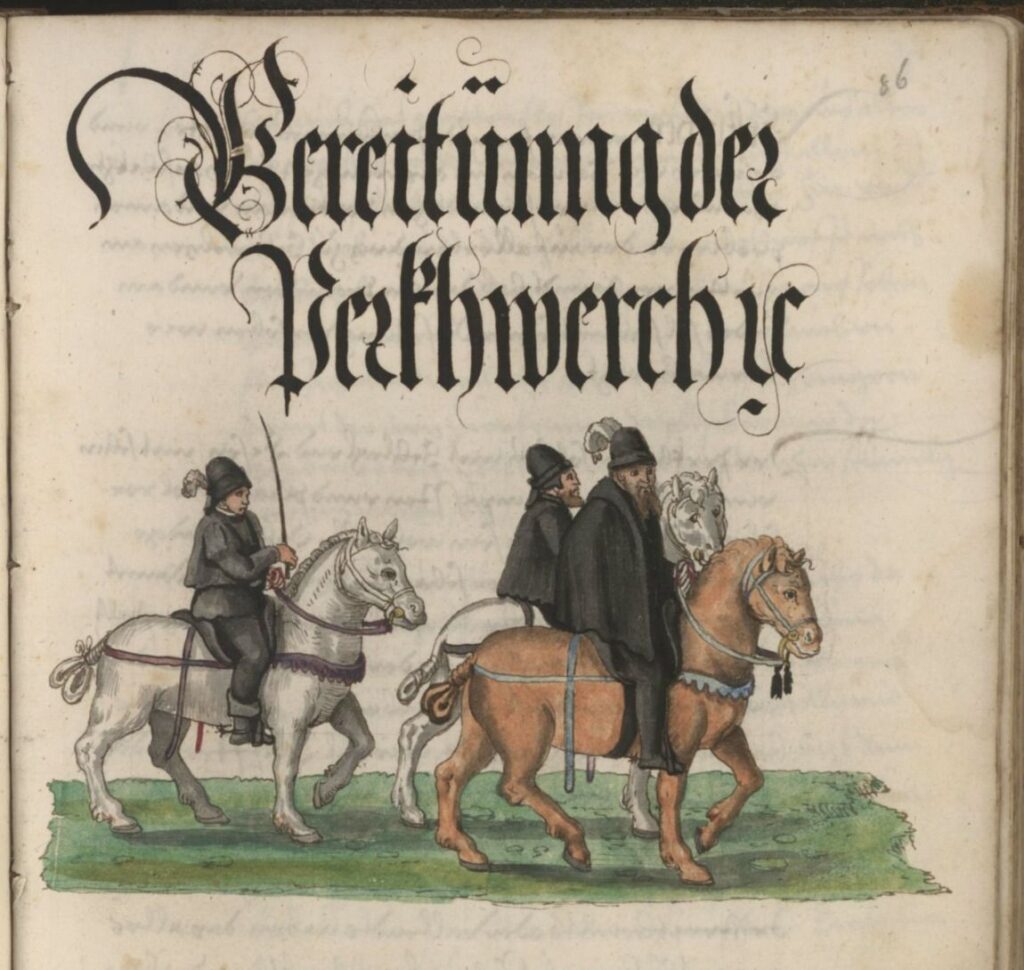 86
Bereitüung der
Perkhwerch ꝛc